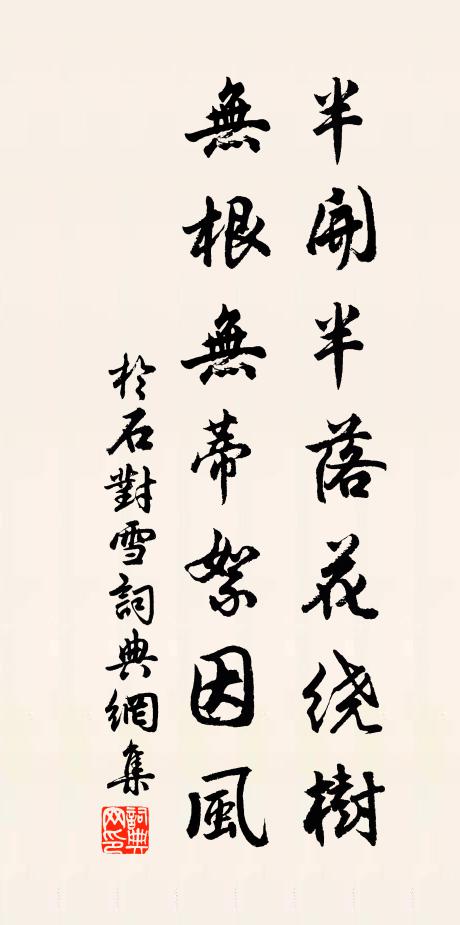 半開半落花绕樹
無根無蒂絮因風
於石對雪詞典網集
詞典网印